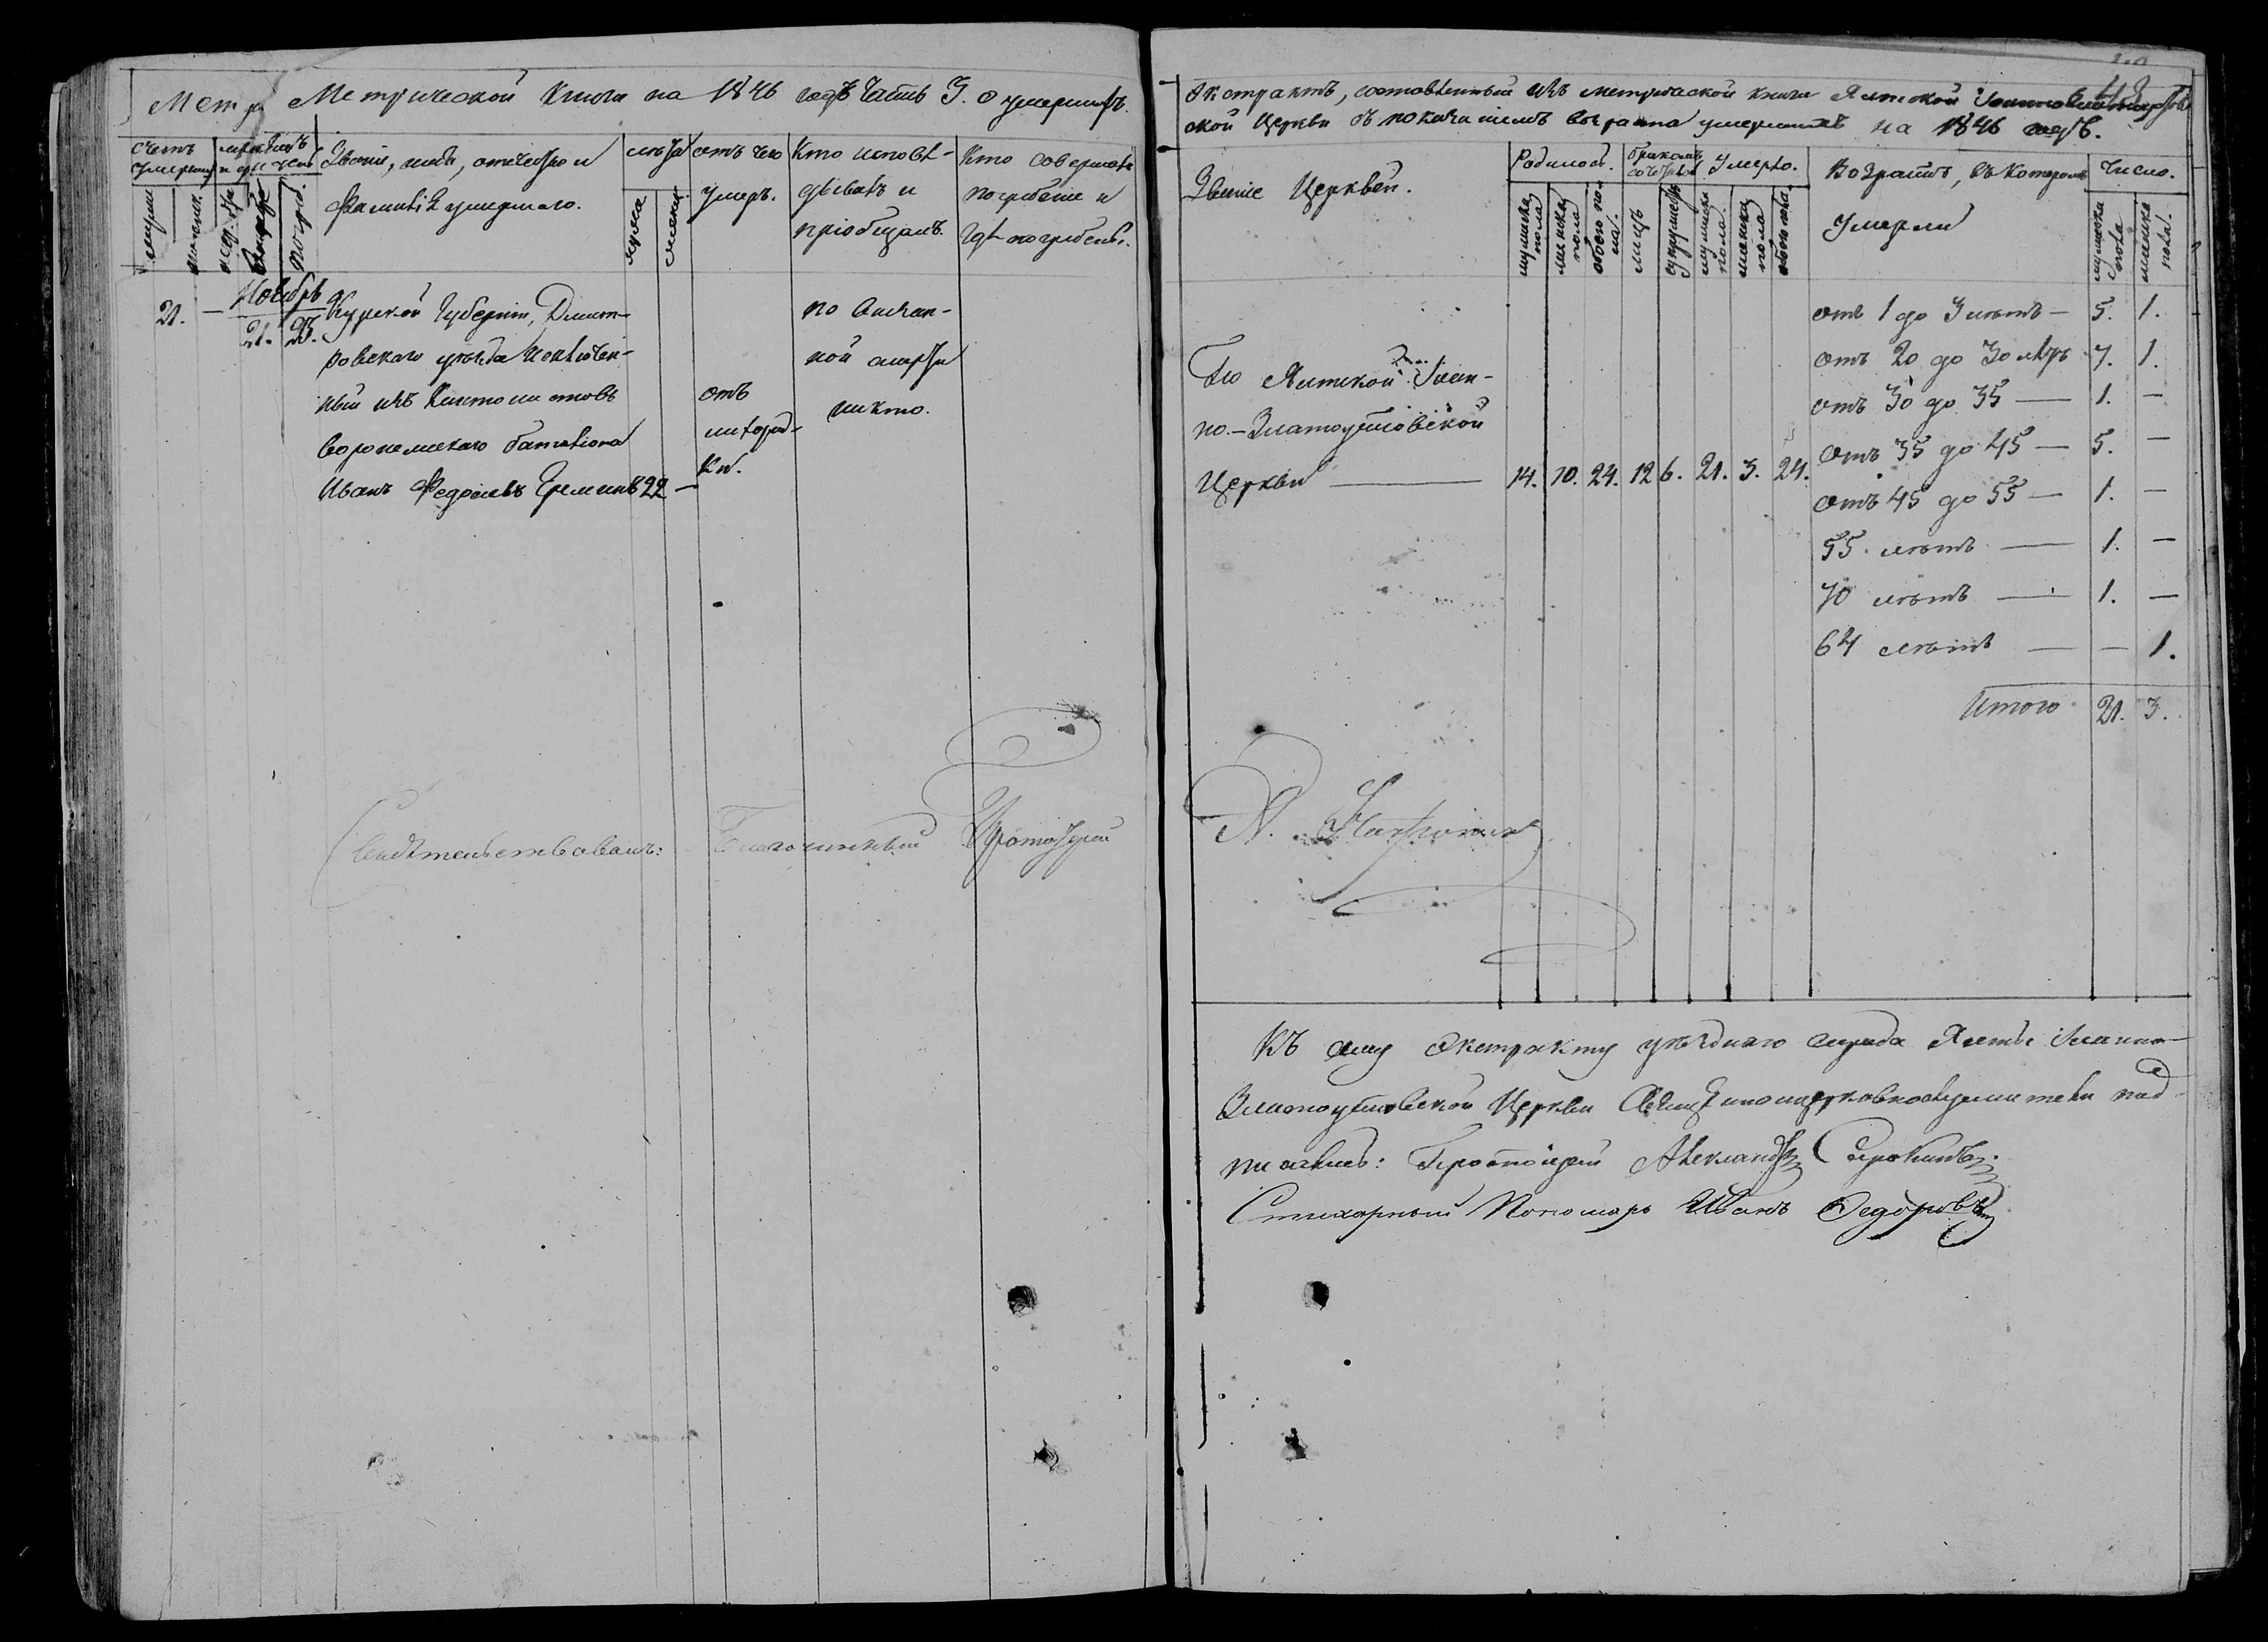 Метрической Книги на 1846 годъ Часть 3. о умершихъ.
счетъ умершихъ
мѣсяцъ и день
Званіе, имя, отечество и
фамилія умершаго.
лѣта
отъ чего
умеръ.
Кто исповѣ-
дывалъ и
пріобщалъ.
Кто совершалъ
погребеніе и
гдѣ погребены.
Ноябрь
21. — 21. 23.
Курской Губерніи, Дмит-
ровскаго уѣзда
изъ Кантонистовъ
Воронежскаго баталіона
Иванъ Федосіевъ Ереминъ 22 —
отъ
лихорад-
ки.
по внезап-
ной смерти
никто.
Свидѣтельствовалъ: Благочинный Протоіерей
Экстрактъ, составленный изъ метрической книги Ялтской Іоанно-Златоустов-
ской Церкви съ показаніемъ возраста умершихъ на 1846 годъ.
Званіе Церквей.
Родилось.
бракомъ
сочеталось
Умерло.
Возрастъ, въ которомъ
Умерли
Число.
мужеска пола
женска пола
обоего по-
ла.
лицъ
супружествъ
мужеска пола.
женска пола
обоего пола
мужеска пола
женска пола.
По Ялтской Іоан-
но-Златоустовской
Церкви — 14. 10. 24. 12 6. 21. 3. 24.
отъ 1 до 3 лѣтъ — 5. 1.
отъ 20 до 30 лѣтъ 7. 1.
отъ 30 до 35 — 1. —
отъ 35 до 45 — 5. —
отъ 45 до 55 — 1. —
55. лѣтъ — 1. —
70 лѣтъ — 1. —
64 лѣтъ — — 1.
Итого 21. 3.
Къ сему Экстракту уѣзднаго города Ялты Іоанно-
Златоустовской Церкви Священноцерковнослужители под-
писались: Протоіерей Александръ
Стихарный Пономарь Иванъ Федоровъ